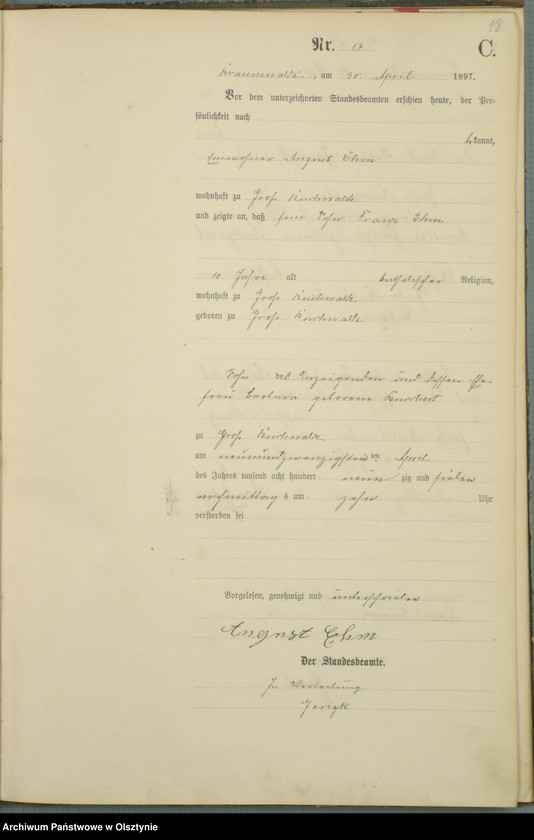 18
Nr. 17
C.
am 30. April 1897.
Vor dem unterzeichneten Standesbeamten erschien heute, der Per-
sönlichkeit nach
bekannt,
Einwohner August Ehm
wohnhaft zu Groß
und zeigte an, daß sein Sohn Franz Ehm
11 Jahre alt katholischer Religion,
wohnhaft zu Groß
geboren zu Groß
Sohn des Anzeigenden und dessen Ehe-
frau Barbara geborene
zu Groß
am neunundzwanzigsten ten April
des Jahres tausend acht hundert neun zig und sieben
nachmittag s um zehn Uhr
verstorben sei
Vorgelesen, genehmigt und unterschrieben
August Ehm
Der Standesbeamte.
In Vertretung
Archiwum Państwowe w Olsztynie